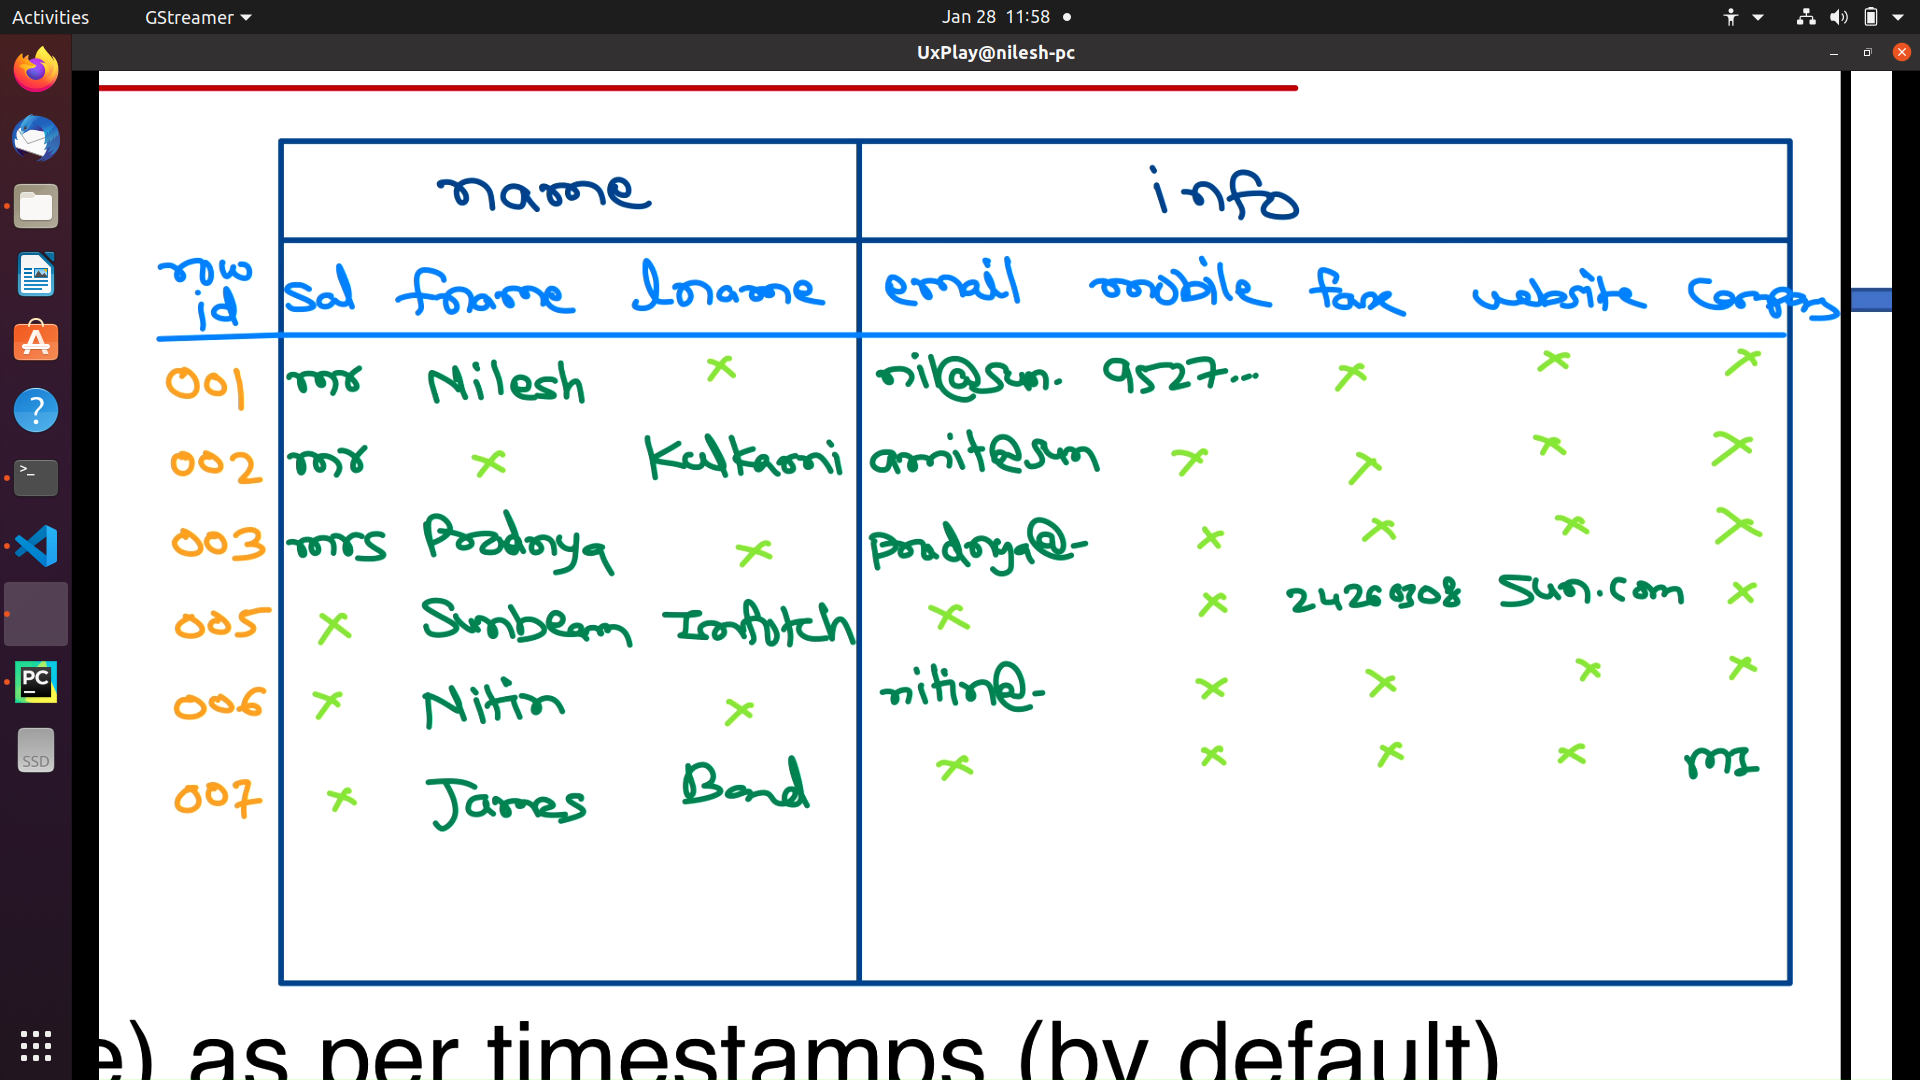 Activities GStreamer Jan 28 11:58
UxPlay@nilesh-pc
name info
row id sal fname lname email mobile fax website
001 mr Nilesh x nil@sun. 9527... x x x
002 mr x Kulkarni amit@sun x x x x
003 mrs Pradnya x pradnya@- x x x x
005 x Sunbeam Infotch x x sun.com x
006 x Nitin x nitin@- x x x x
007 x James Bond x x x x MI
>_
?
PC
SSD
e) as per timestamps (by default)